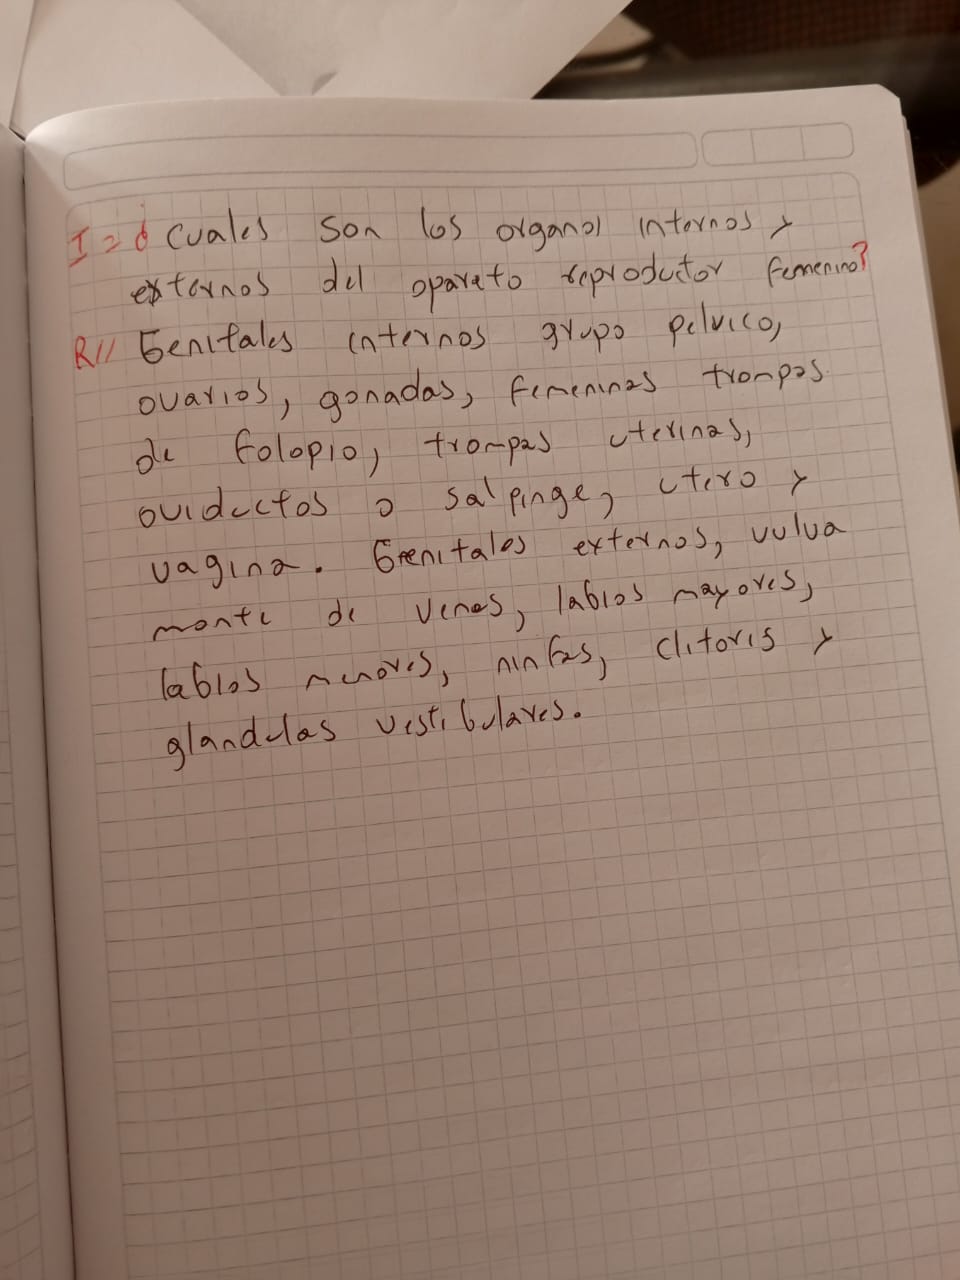 I = ¿ Cuales son los organos internos y
externos del aparato reproductor femenino?
R// Genitales internos grupo pelvico,
ovarios, gonadas, femeninas trompas
de folopio, trompas uterinas,
oviductos o salpinge, utero y
vagina. Genitales externos, vulva
monte de venus, labios mayores,
labios menores, ninfas, clitoris y
glandulas vestibulares.